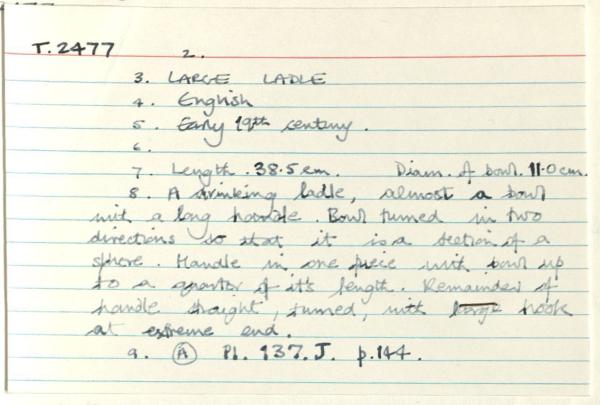 T.2477 2.
3. LARGE LADLE
4. English
5. Early 19th century.
6.
7. Length. 38.5 cm. Diam. of bowl 11.0 cm.
8. A drinking ladle, almost a bowl
with a long handle. Bowl turned in two
directions so that it is a section of a
sphere. Handle in one piece with bowl up
to a quarter of it's length. Remainder of
handle straight, turned, with large hook
at extreme end.
9. A Pl. 137. J. p.144.